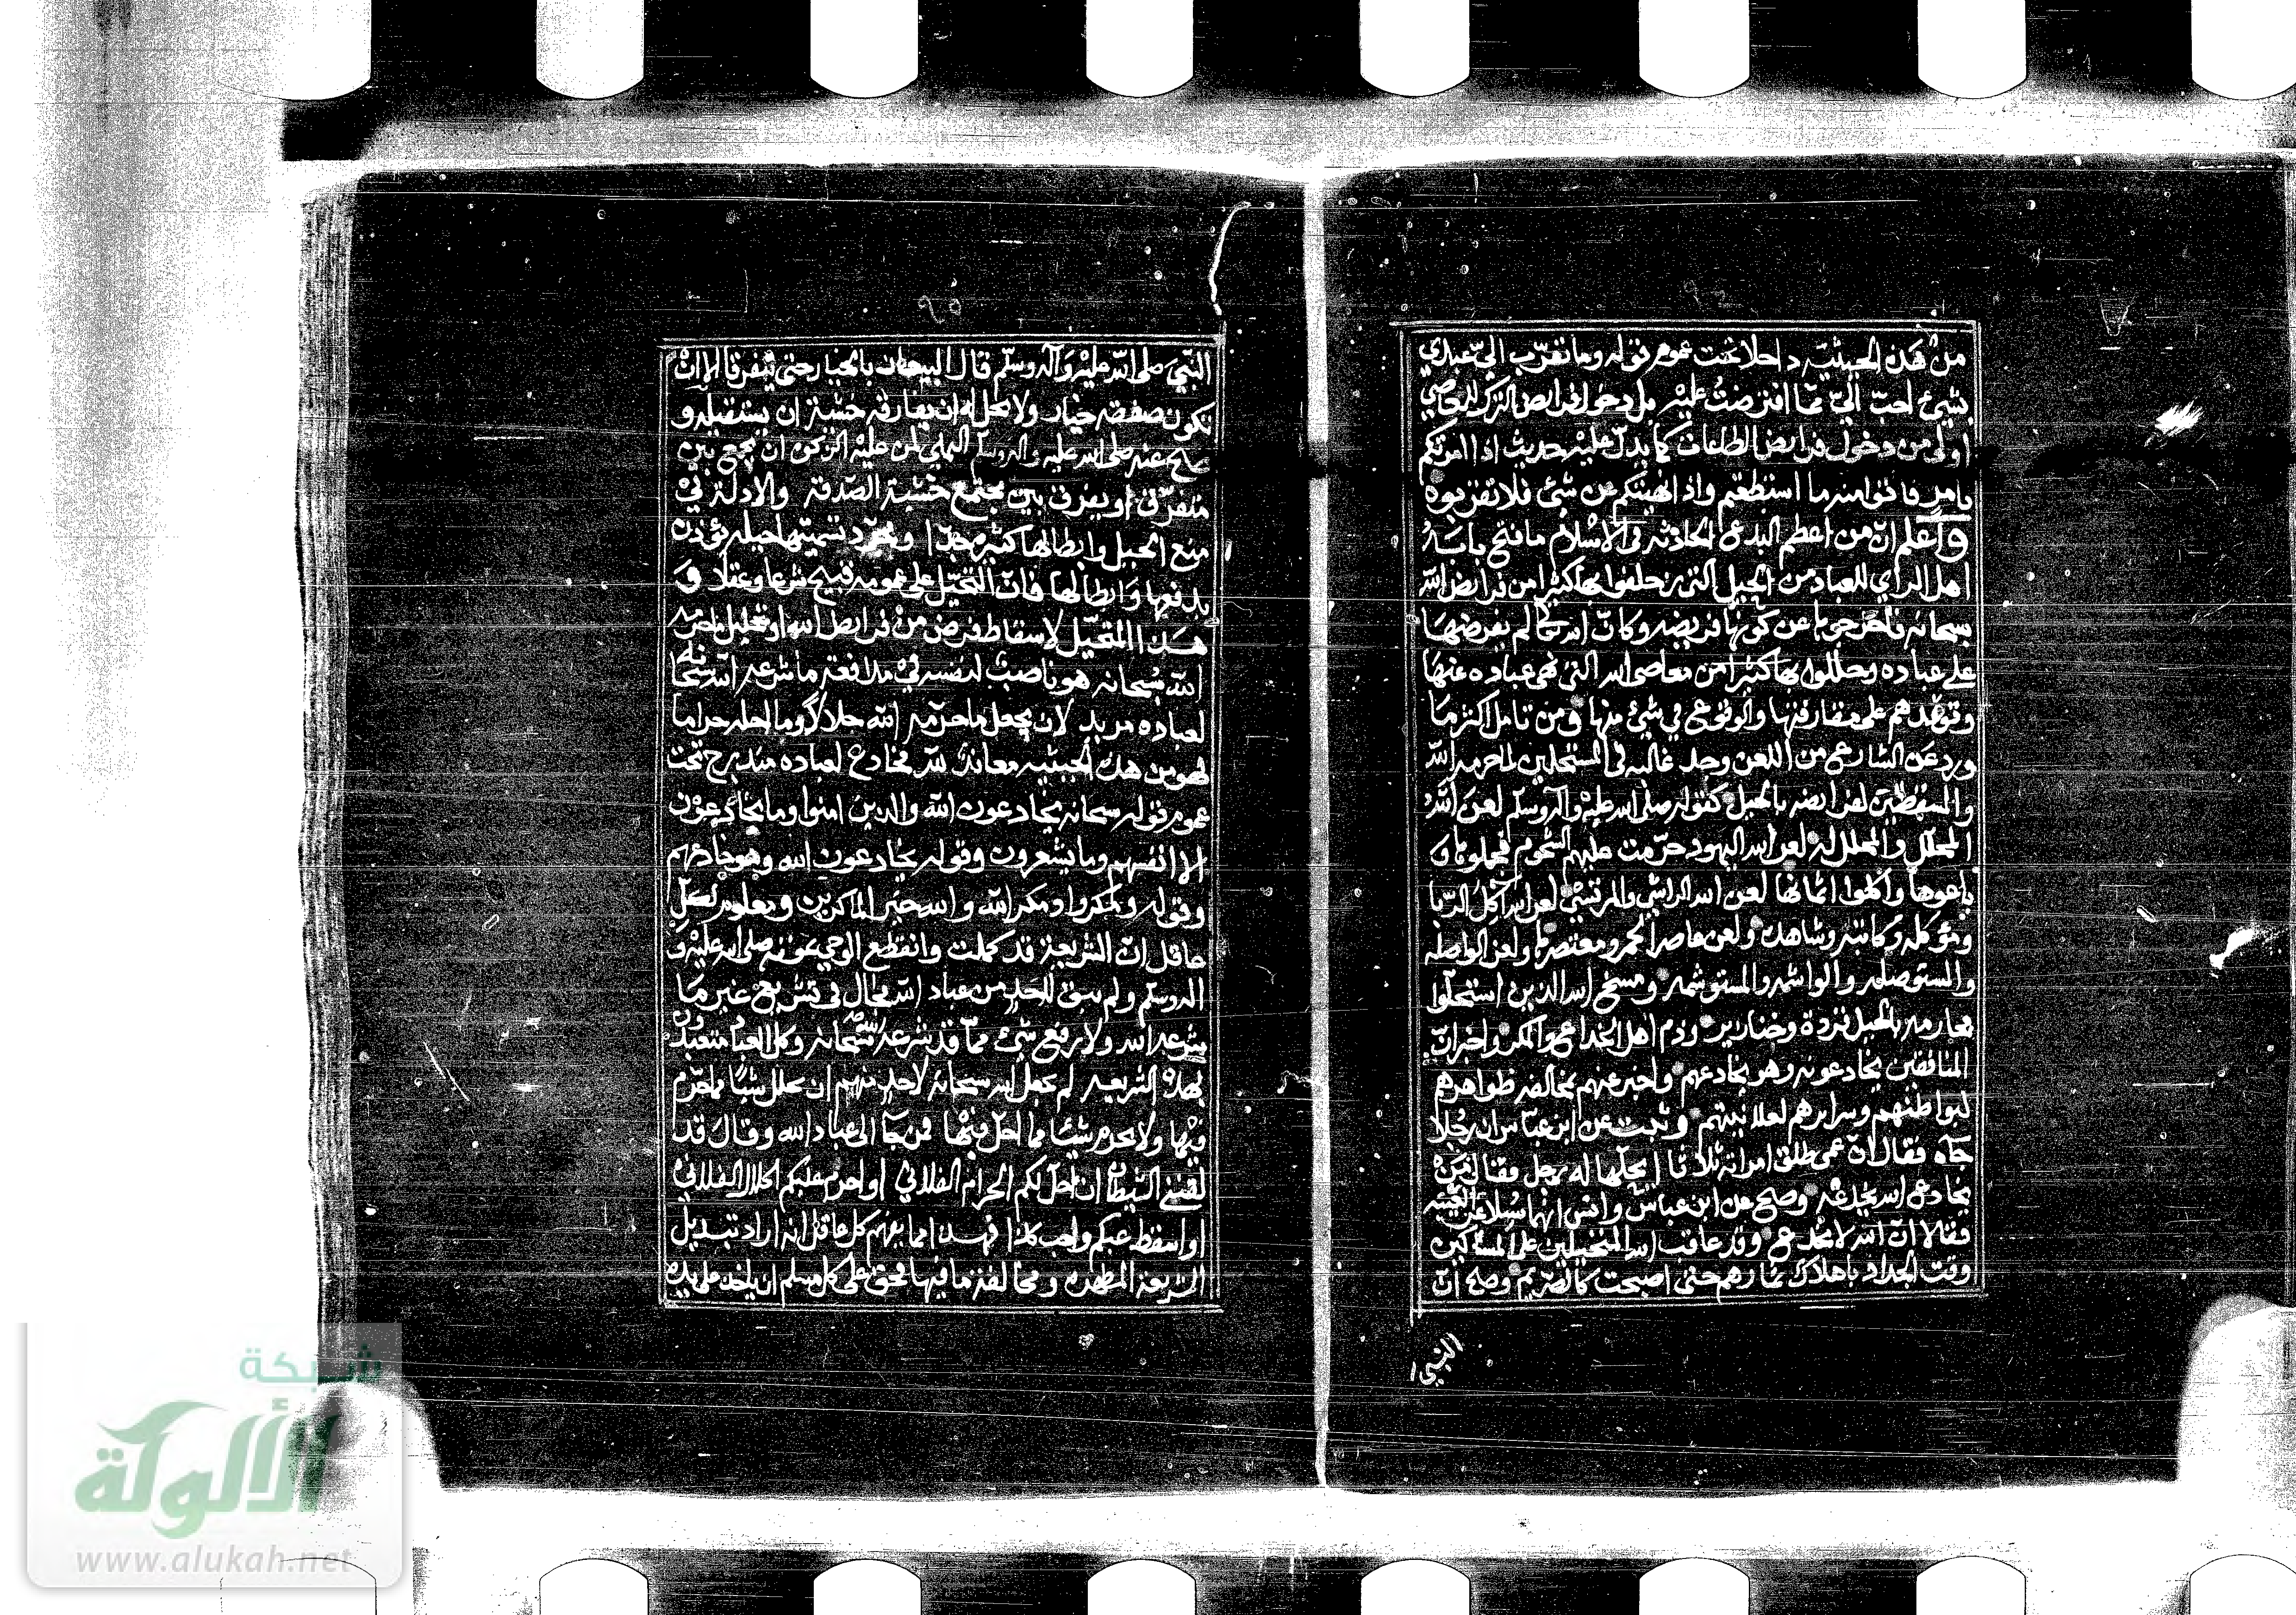 من هذه الحيثية داخلا تحت عموم قوله وما تقرب اليّ عبدي
بشيء احبّ اليّ مما افترضتُ عليه بل دخول فرايض الترك للمعاصي
اولى من دخول فرايض الطاعات كما يدلّ عليه حديث اذا امرتكم
بامرٍ فاتوا منه ما استطعتم واذا نهيتكم عن شيء فلا تقربوه
واعلم انّ من اعظم البدع الحادثة في الاسلام ما فتح بابه
اهل الراي للعباد من الحيل التي زحلقوا بها كثيرا من فرايض الله
سبحانه فاخرجوها عن كونها فريضة وكانّ الله تعالى لم يفرضها
على عباده وحللوا بها كثيرا من معاصي الله التي نهى عباده عنها
وتوعّدهم على مقارفتها والوقوع في شيء منها ومن تامل اكثر ما
ورد عن الشارع من اللعن وجد غالبه في المستحلين لما حرمه الله
والمسقطين لفرايضه بالحيل كقوله صلى الله عليه وآله وسلم لعن الله
المحلل والمحلل له لعن الله اليهود حرّمت عليهم الشحوم فجملوها و
باعوها واكلوا اثمانها لعن الله الراشي والمرتشي لعن الله آكل الربا
وموكله وكاتبه وشاهده ولعن عاصر الخمر ومعتصرها ولعن الواصله
والمستوصله والواشمه والمستوشمه ومسخ الله الذين استحلّوا
محارمه بالحيل قردة وخنازير وذم اهل الخداع والمكر واخبر انّ
المنافقين يخادعونه وهو يخادعهم واخبر عنهم بمخالفة ظواهرهم
لبواطنهم وسرايرهم لعلانيتهم وثبت عن ابن عباس ان رجُلا
جآه فقال انّ عمي طلق امراته ثلاثا ايحلّها له رجل فقال من
يخادع الله يخدعه وصح عن ابن عباس وانس انهما سُئلا عن العينه
فقالا انّ الله لا يخدع وقد عاقب الله المتحيلين على المساكين
وقت الجداد باهلاك ثمارهم حتى اصبحت كالصّريم وصح انّ
النبي
٩٥
النّبيّ صلى الله عليه وآله وسلّم قال البيعان بالخيار حتى يتفرقا الا انْ
تكون صفقة خيار ولا يحل له ان يفارقه خشية ان يستقيله و
صح عنه صلى الله عليه واله وسلم النهي لمن عليه الزكوة ان يجمع بين
متفرّق او يفرق بين مجتمع خشية الصّدقة والادلة في
منع الحيل وابطالها كثيرة جدّا ومجرّد تسميتها حيله يؤذن
بدفعها وابطالها فانّ التحيّل على عمومه قبيح شرعا وعقلا و
هذا المتحيّل لاسقاط فرض من فرايض الله او تحليل ما حرمه
الله سُبحانه هو ناصبٌ لنفسه في مدافعة ما شرعه الله سبحانه
لعباده مريد لان يجعل ما حرّمه الله حلالا وما احله حراما
فهو من هذه الحيثيه معاند لله مخادع لعباده مندرج تحت
عموم قوله سبحانه يخادعون الله والذين امنوا وما يخادعون
الا انفسهم وما يشعرون وقوله يخادعون الله وهو خادعهم
وقوله ومكروا ومكر الله والله خير الماكرين ومعلوم لكلّ
عاقل انّ الشّريعة قد كملت وانقطع الوحي بموته صلى الله عليه و
اله وسلم ولم يبق لاحد من عباد الله مجال في تشريع غير ما
شرعه الله ولا رفع شيء مما قد شرعه الله سُبحانه وكل العباد متعبدون
بهذه الشريعه لم يجعل الله سبحانهُ لاحدٍ منهم ان يحلل شيئًا مما حرّم
فيها ولا يحرم شيئا مما احلّ فيها فمن جآ الى عباد الله وقال قد
لقنني الشيطان ان احل لكم الحرام الفلاني او احرم عليكم الحلال الفلاني
او اسقط عنكم واجب كذا فهذا مما يفهم كل عاقل انه اراد تبديل
الشريعة المطهره ومخالفة ما فيها فحق على كل مسلم ان ياخذ على يده
شبكة
الألوكة
www.alukah.net